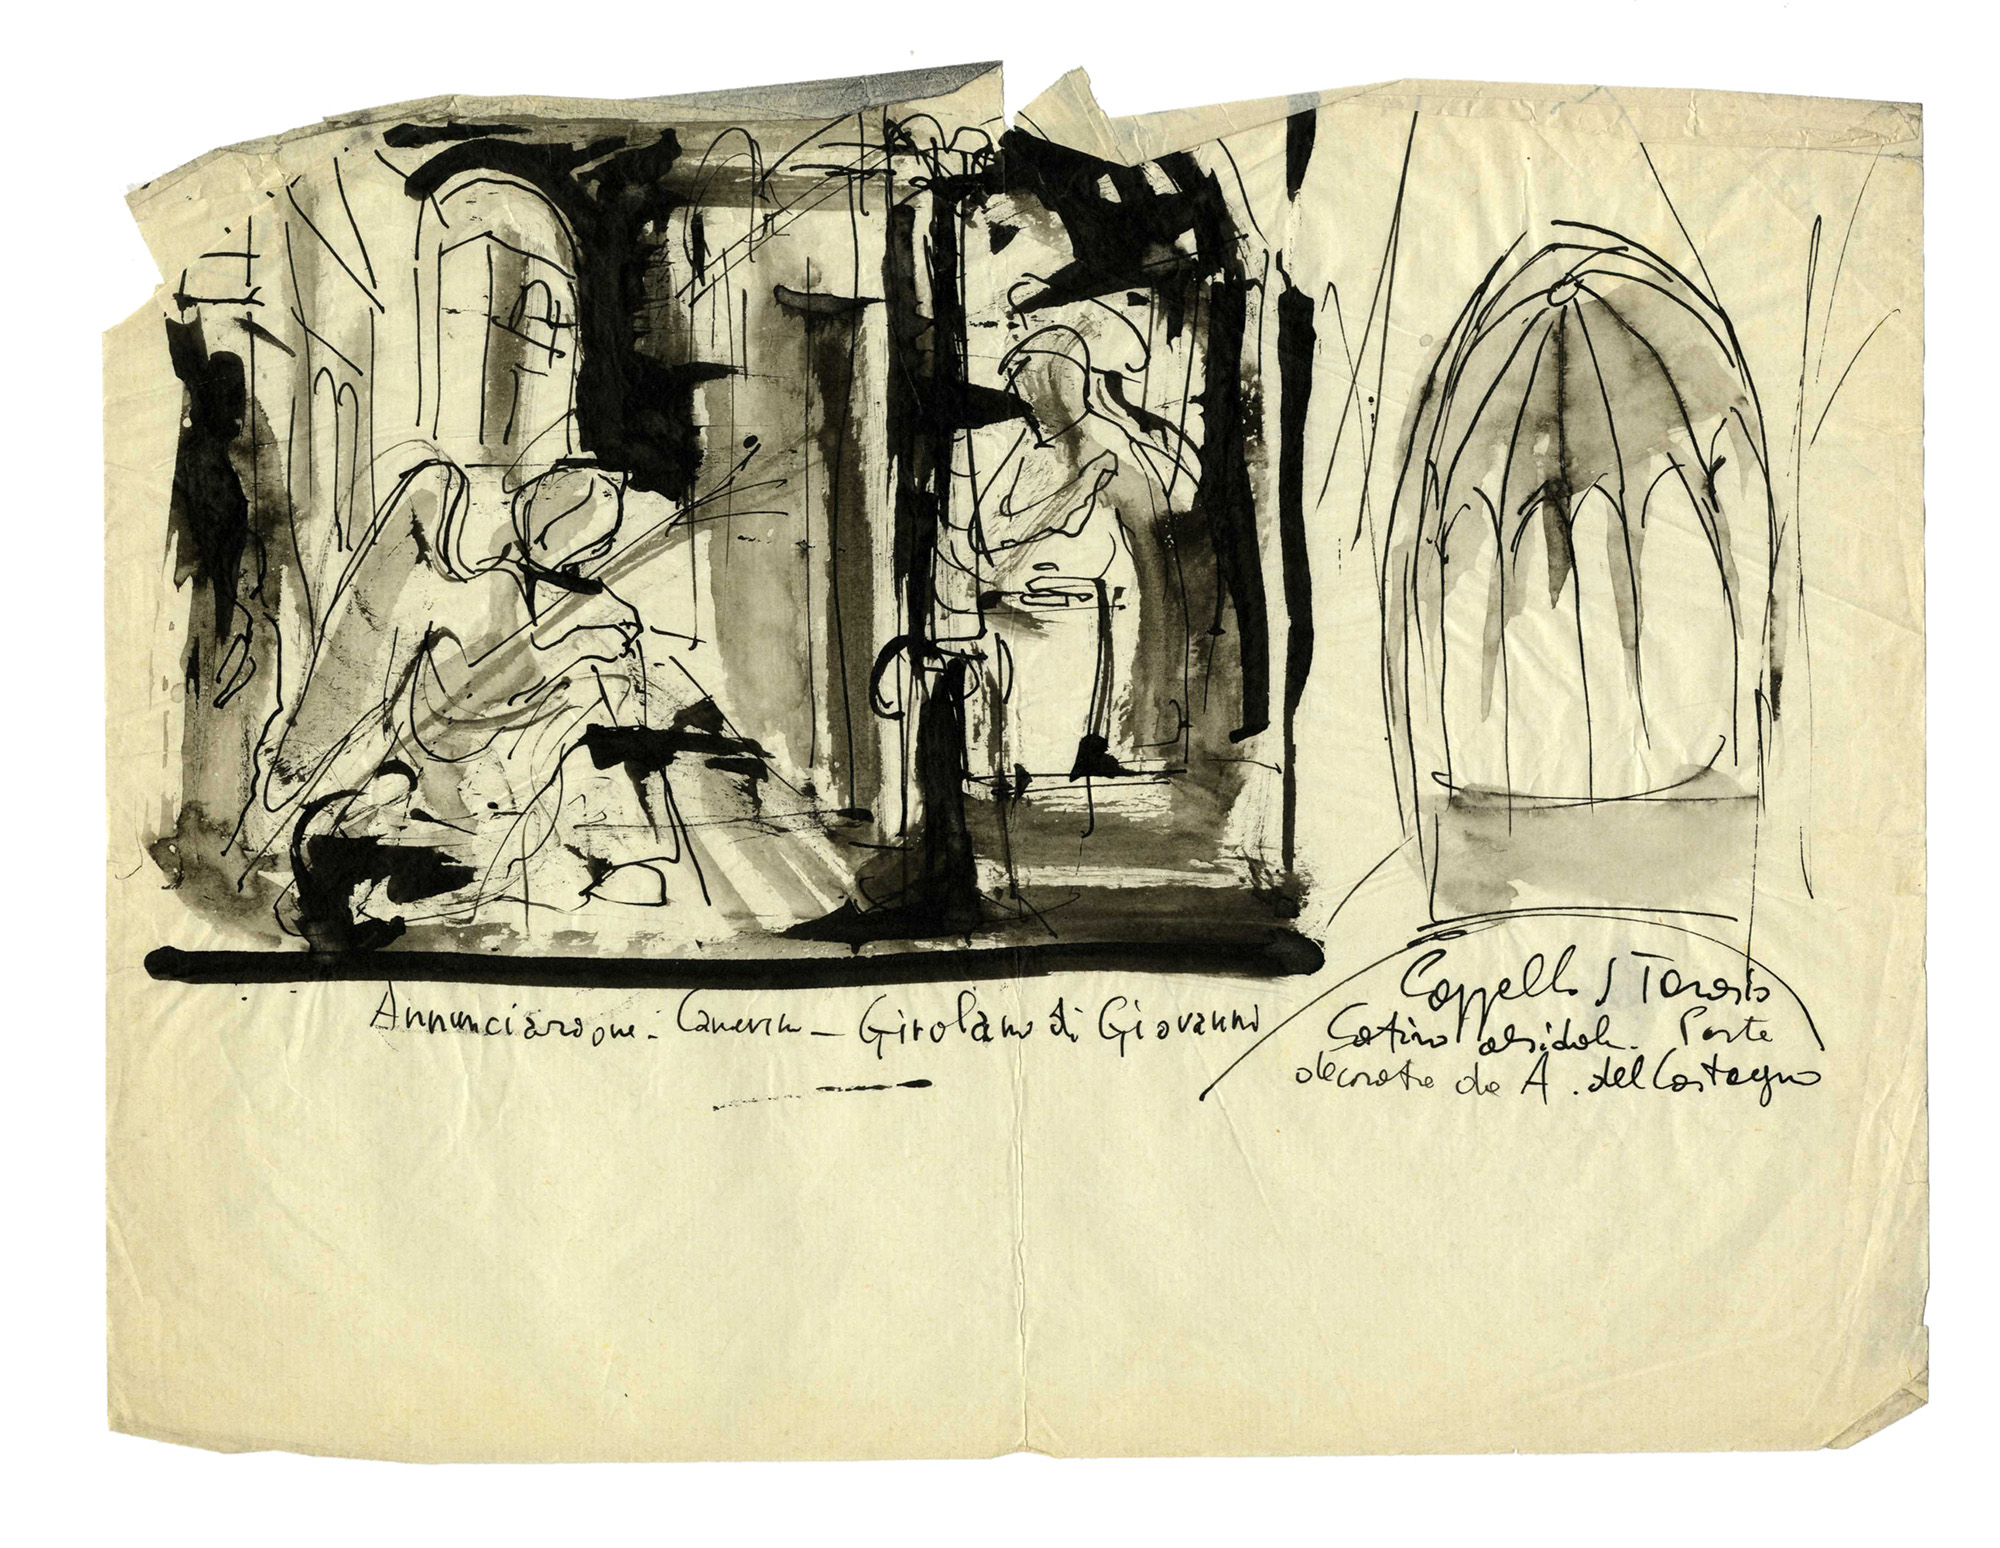 Annunciazione - Camerino - Girolamo di Giovanni
Cappella S Tarasio
Catino absidale. Parte
decorata da A. del Castagno